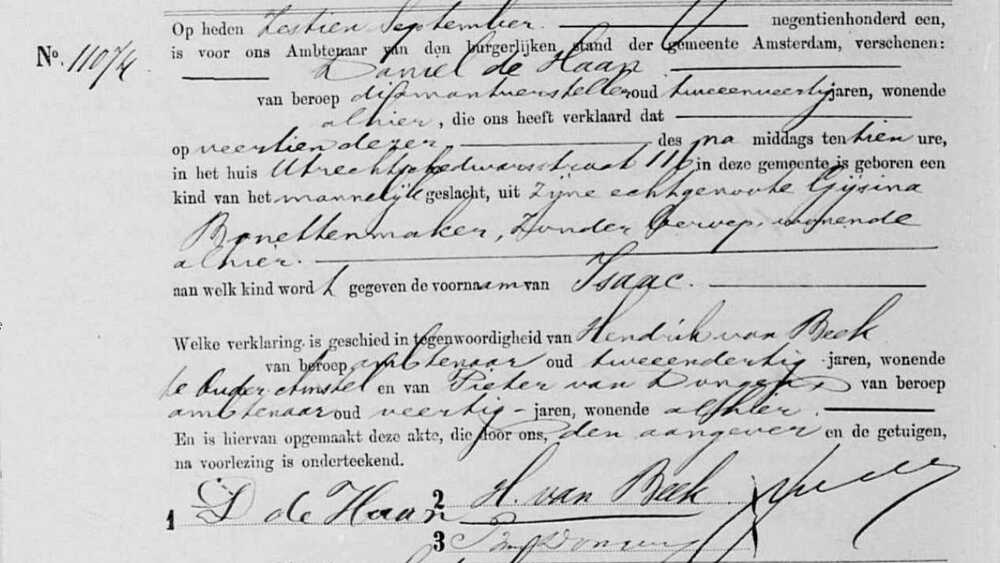 Op heden Zestien September negentienhonderd een,
No. 11074 is voor ons Ambtenaar van den burgerlijken stand der gemeente Amsterdam, verschenen:
Daniel de Haan
van beroep diamantversteller oud tweeenveertig jaren, wonende
alhier, die ons heeft verklaard dat
op veertien dezer des na middags ten tien ure,
in het huis Utrechtschedwarsstraat 116 in deze gemeente is geboren een
kind van het mannelijk geslacht, uit zijne echtgenoote Gijsina
Bonettenmaker, zonder beroep, wonende
alhier.
aan welk kind word t gegeven de voornaam van Isaac.
Welke verklaring is geschied in tegenwoordigheid van Hendrik van Beek
van beroep ambtenaar oud tweeendertig jaren, wonende
te Ouder Amstel en van Pieter van Dongen van beroep
ambtenaar oud veertig jaren, wonende alhier.
En is hiervan opgemaakt deze akte, die door ons, den aangever en de getuigen,
na voorlezing is onderteekend.
1 D de Haan 2 H. van Beek
3 P van Dongen